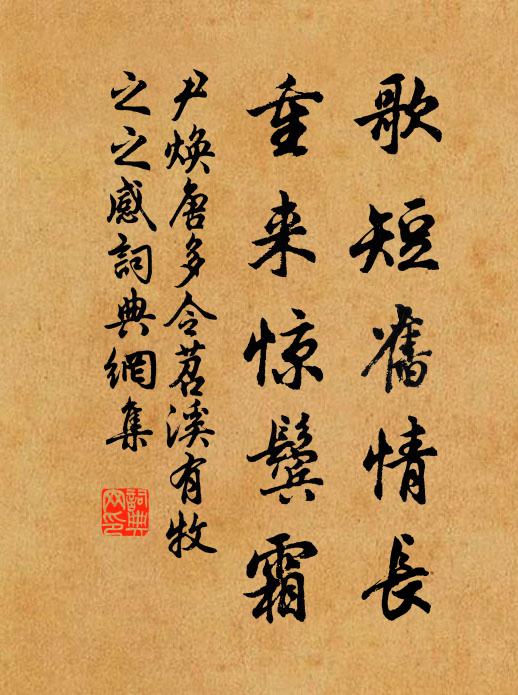 歌短舊情長
重来惊鬓霜
尹焕唐多令苕溪有牧
之之感詞典網集
詞典网印